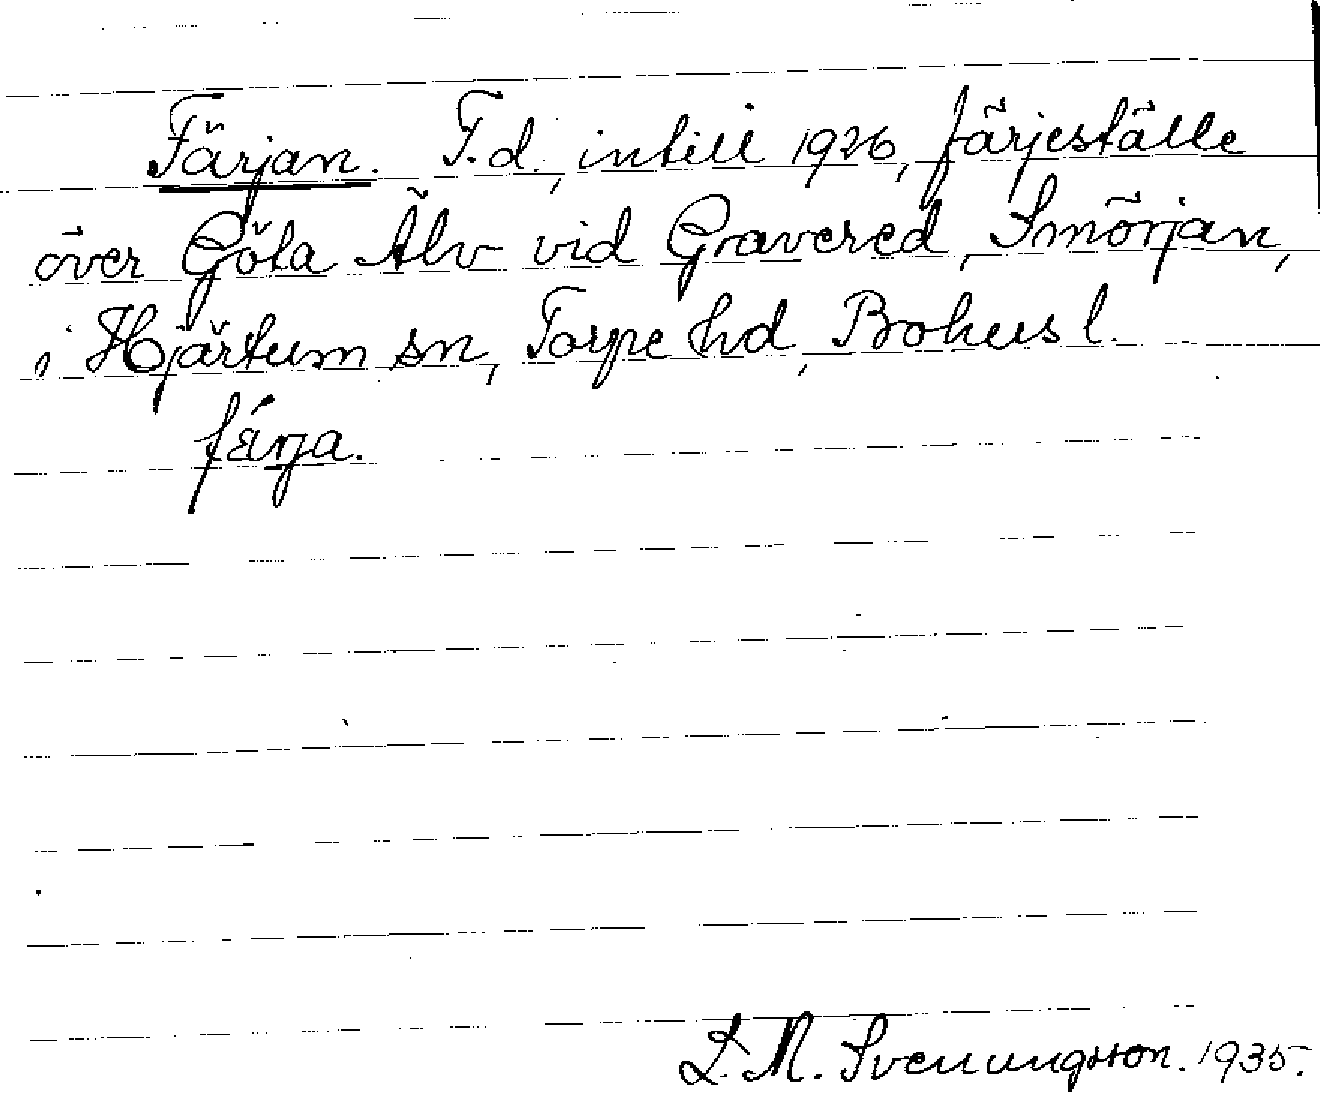 Färjan. F.d., intill 1926, färjeställe
över Göta Älv vid Gravered, Smörjan,
i Hjärtum sn, Torpe hd, Bohusl.
färja.
L. M. Svenungsson. 1935.